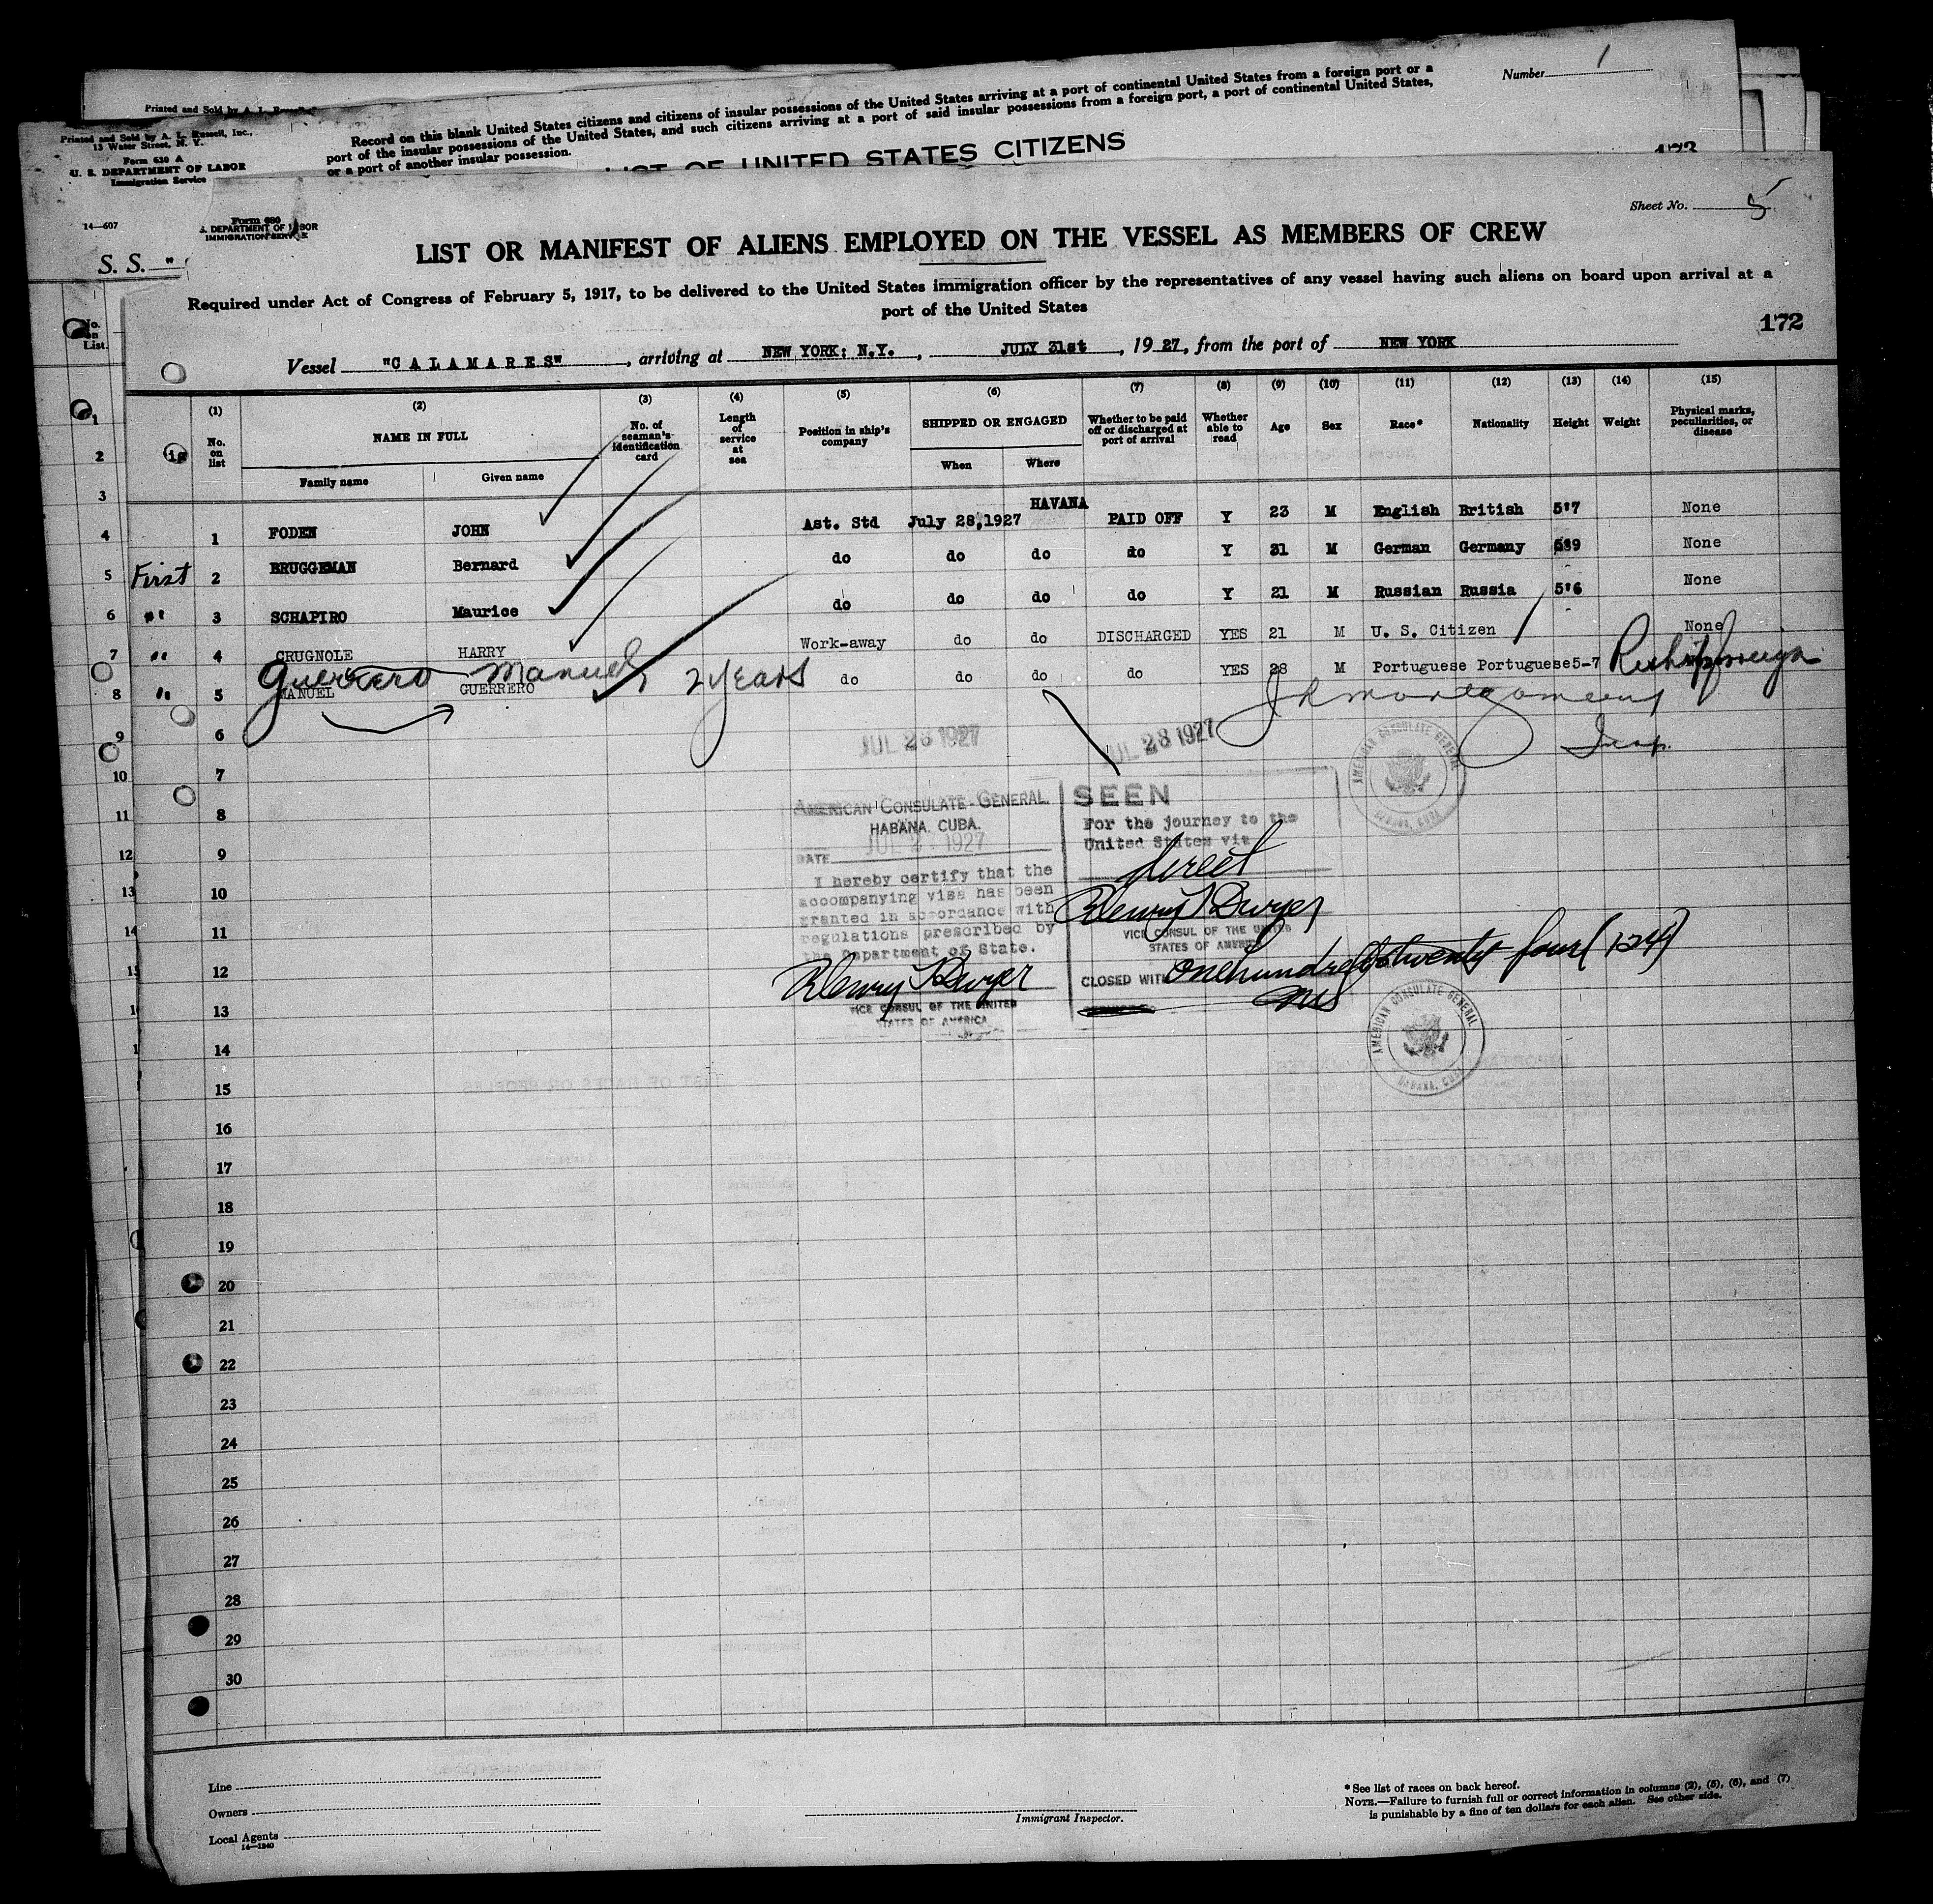 Number 1
Printed and Sold by A. L. Russell
Record on this blank United States citizens and citizens of insular possessions of the United States arriving at a port of continental United States from a foreign port or a
port of the insular possessions of the United States, and such citizens arriving at a port of said insular possessions from a foreign port, a port of continental United States,
or a port of another insular possession.
LIST OF UNITED STATES CITIZENS
173
Printed and Sold by A. L. Russell, Inc.,
13 Water Street, N. Y.
Form 630 A
U. S. DEPARTMENT OF LABOR
Immigration Service
14—607
S. S. "
No. on List.
Form 680
U. S. DEPARTMENT OF LABOR
IMMIGRATION SERVICE
Sheet No. 5
LIST OR MANIFEST OF ALIENS EMPLOYED ON THE VESSEL AS MEMBERS OF CREW
Required under Act of Congress of February 5, 1917, to be delivered to the United States immigration officer by the representatives of any vessel having such aliens on board upon arrival at a
port of the United States
172
Vessel "CALAMARES", arriving at NEW YORK; N.Y., JULY 31st, 1927, from the port of NEW YORK
(1) (2) (3) (4) (5) (6) (7) (8) (9) (10) (11) (12) (13) (14) (15)
No. on list NAME IN FULL No. of seaman's identification card Length of service at sea Position in ship's company SHIPPED OR ENGAGED Whether to be paid off or discharged at port of arrival Whether able to read Age Sex Race* Nationality Height Weight Physical marks, peculiarities, or disease
Family name Given name When Where
1 FODEN JOHN Ast. Std July 28,1927 HAVANA PAID OFF Y 23 M English British 5'7 None
First 2 BRUGGEMAN Bernard do do do do Y 31 M German Germany 5'9 None
" 3 SCHAPIRO Maurice do do do do Y 21 M Russian Russia 5'6 None
" 4 CRUGNOLE HARRY Work-away do do DISCHARGED YES 21 M U. S. Citizen None
Guerrero Manuel 2 years
" 5 MANUEL GUERRERO do do do do YES 28 M Portuguese Portuguese 5-7 Reship foreign
J R Montgomery
Insp.
6
7
8
9
10
11
12
13
14
15
16
17
18
19
20
21
22
23
24
25
26
27
28
29
30
JUL 28 1927
JUL 28 1927
AMERICAN CONSULATE GENERAL
HABANA, CUBA
AMERICAN CONSULATE-GENERAL
HABANA, CUBA.
DATE JUL 2 1927
I hereby certify that the
accompanying visa has been
granted in accordance with
regulations prescribed by
the Department of State.
Henry T Dwyer
VICE CONSUL OF THE UNITED
STATES OF AMERICA
SEEN
For the journey to the
United States via
direct
Henry T Dwyer
VICE CONSUL OF THE UNITED
STATES OF AMERICA
CLOSED WITH One hundred & twenty four (124)
AMERICAN CONSULATE GENERAL
HABANA, CUBA
Line
Owners
Local Agents
14—1240
Immigrant Inspector.
*See list of races on back hereof.
NOTE.—Failure to furnish full or correct information in columns (2), (5), (6), and (7)
is punishable by a fine of ten dollars for each alien. See other side.